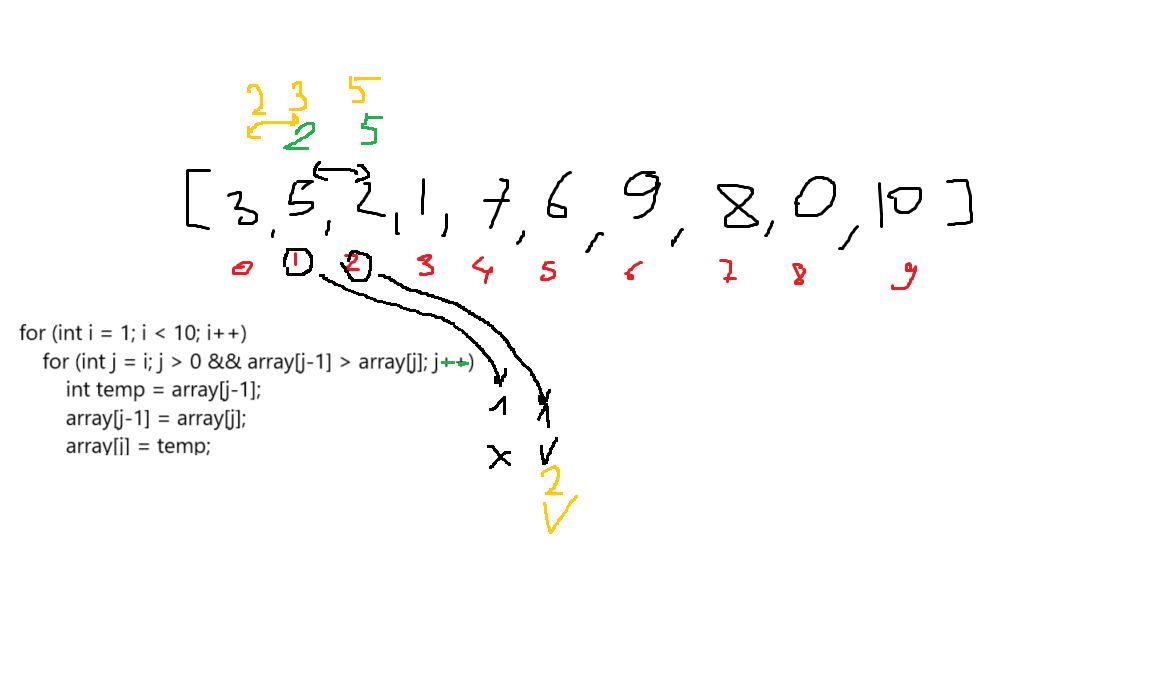 2 3 5
2 5
[3, 5, 2, 1, 7, 6, 9, 8, 0, 10]
0 1 2 3 4 5 6 7 8 9
for (int i = 1; i < 10; i++)
for (int j = i; j > 0 && array[j-1] > array[j]; j++)
int temp = array[j-1];
array[j-1] = array[j];
array[j] = temp;
1 1
x V
2
V